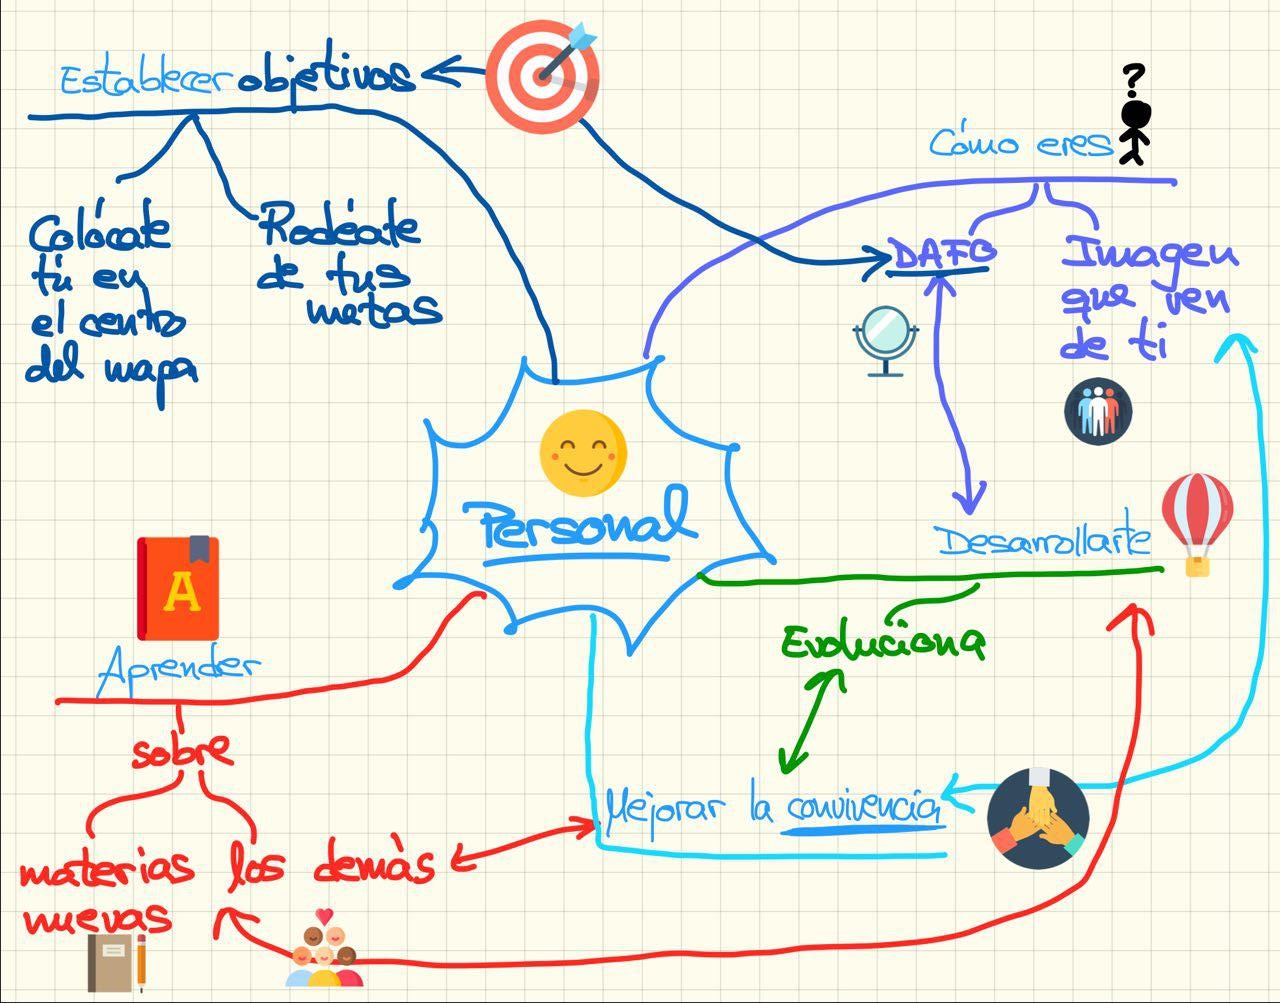 Establecer objetivos
Colócate
tú en
el centro
del mapa
Rodéate
de tus
metas
?
Cómo eres
DAFO
Imagen
que ven
de ti
Personal
Desarrollarte
Evoluciona
A
Aprender
sobre
materias
nuevas
los demás
Mejorar la convivencia